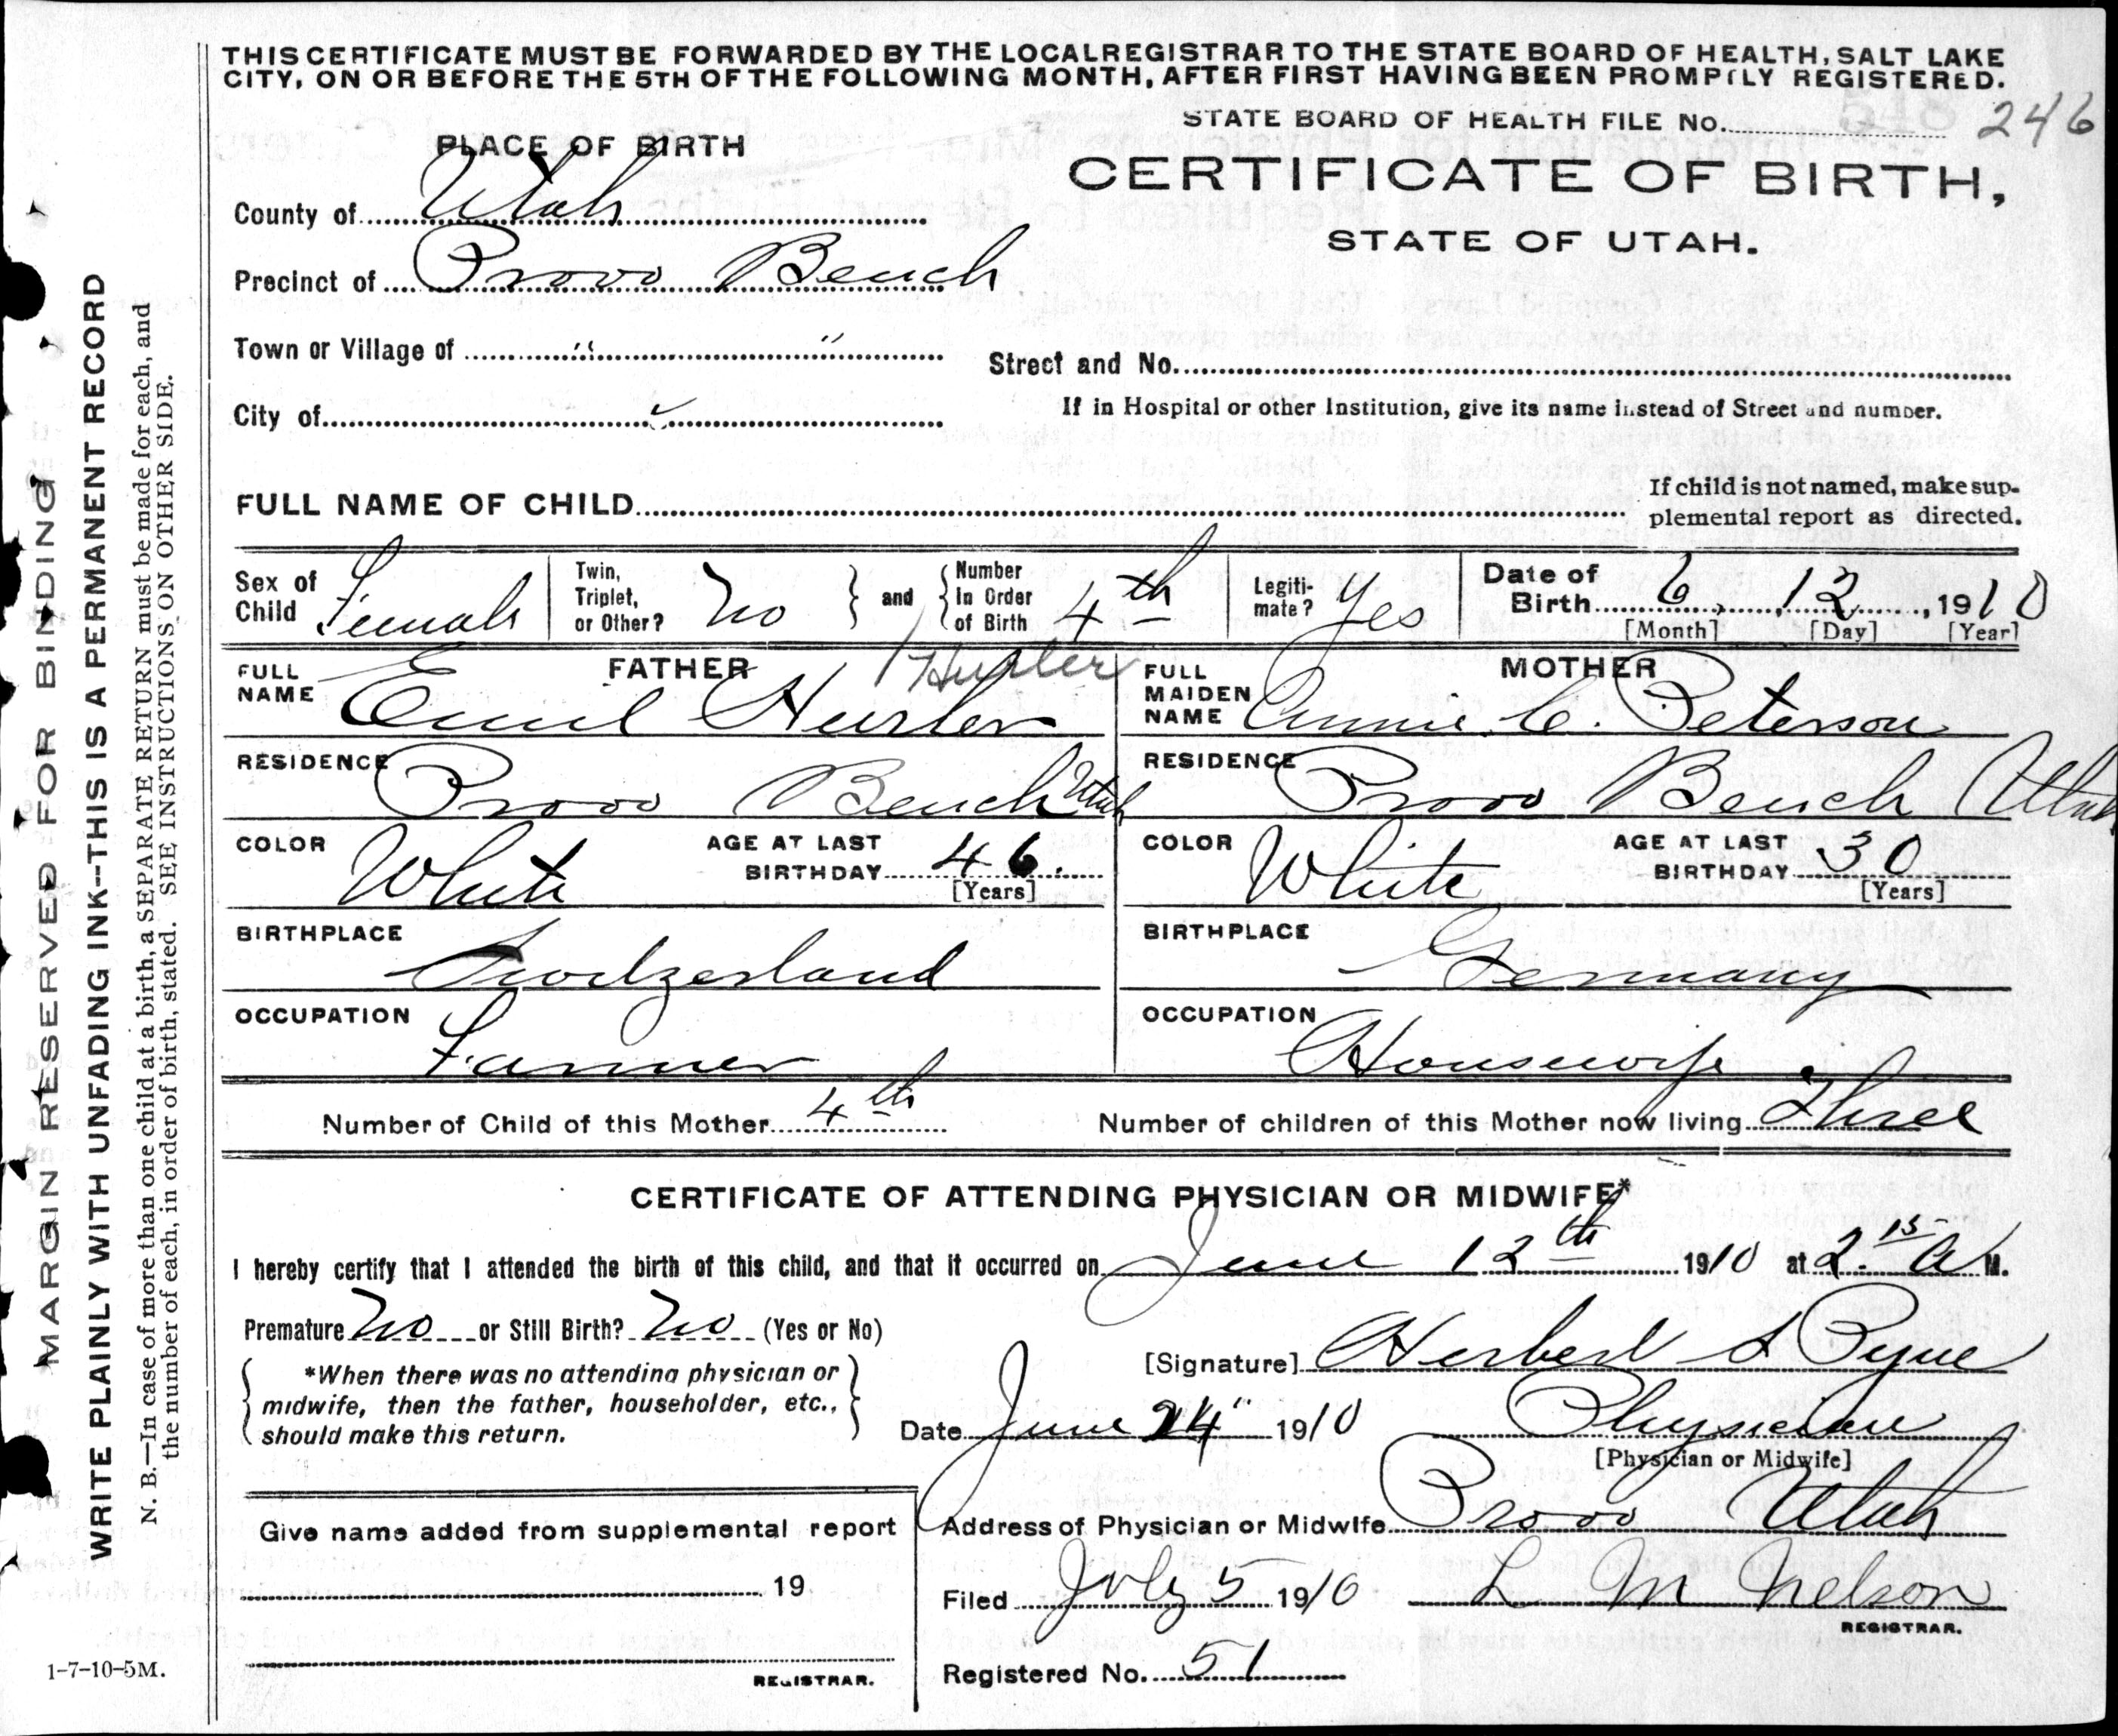 THIS CERTIFICATE MUST BE FORWARDED BY THE LOCAL REGISTRAR TO THE STATE BOARD OF HEALTH, SALT LAKE
CITY, ON OR BEFORE THE 5TH OF THE FOLLOWING MONTH, AFTER FIRST HAVING BEEN PROMPTLY REGISTERED.
STATE BOARD OF HEALTH FILE No. 246
PLACE OF BIRTH
CERTIFICATE OF BIRTH,
STATE OF UTAH.
County of Utah
Precinct of Provo Bench
Town or Village of " "
Street and No.
City of
If in Hospital or other Institution, give its name instead of Street and number.
FULL NAME OF CHILD
If child is not named, make sup-
plemental report as directed.
Sex of Child Female
Twin, Triplet, or Other? No
and
Number In Order of Birth 4th
Legiti-mate? Yes
Date of Birth 6, 12, 1910
[Month] [Day] [Year]
FATHER
FULL NAME Emil Hursler
MOTHER
FULL MAIDEN NAME Annie C. Peterson
RESIDENCE Provo Bench Utah
RESIDENCE Provo Bench Utah
COLOR White
AGE AT LAST BIRTHDAY 46.
[Years]
COLOR White
AGE AT LAST BIRTHDAY 30
[Years]
BIRTHPLACE Switzerland
BIRTHPLACE Germany
OCCUPATION Farmer
OCCUPATION Housewife
Number of Child of this Mother 4th
Number of children of this Mother now living Three
CERTIFICATE OF ATTENDING PHYSICIAN OR MIDWIFE*
I hereby certify that I attended the birth of this child, and that it occurred on June 12th 1910 at 2.15 A M.
Premature No or Still Birth? No (Yes or No)
[Signature] Herbert S Pyne
*When there was no attending physician or
midwife, then the father, householder, etc.,
should make this return.
Date June 24" 1910
Physician
[Physician or Midwife]
Address of Physician or Midwife Provo Utah
Give name added from supplemental report
19
REGISTRAR.
Filed July 5 1910 L M Nelson
REGISTRAR.
Registered No. 51
1-7-10-5M.
MARGIN RESERVED FOR BINDING
WRITE PLAINLY WITH UNFADING INK--THIS IS A PERMANENT RECORD
N. B.—In case of more than one child at a birth, a SEPARATE RETURN must be made for each, and
the number of each, in order of birth, stated. SEE INSTRUCTIONS ON OTHER SIDE.